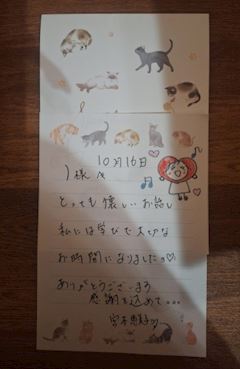 10月16日
様
とっても懐しいお話し
私には学びで大切な
お時間になりましたっ♡
ありがとうございます
感謝を込めて...